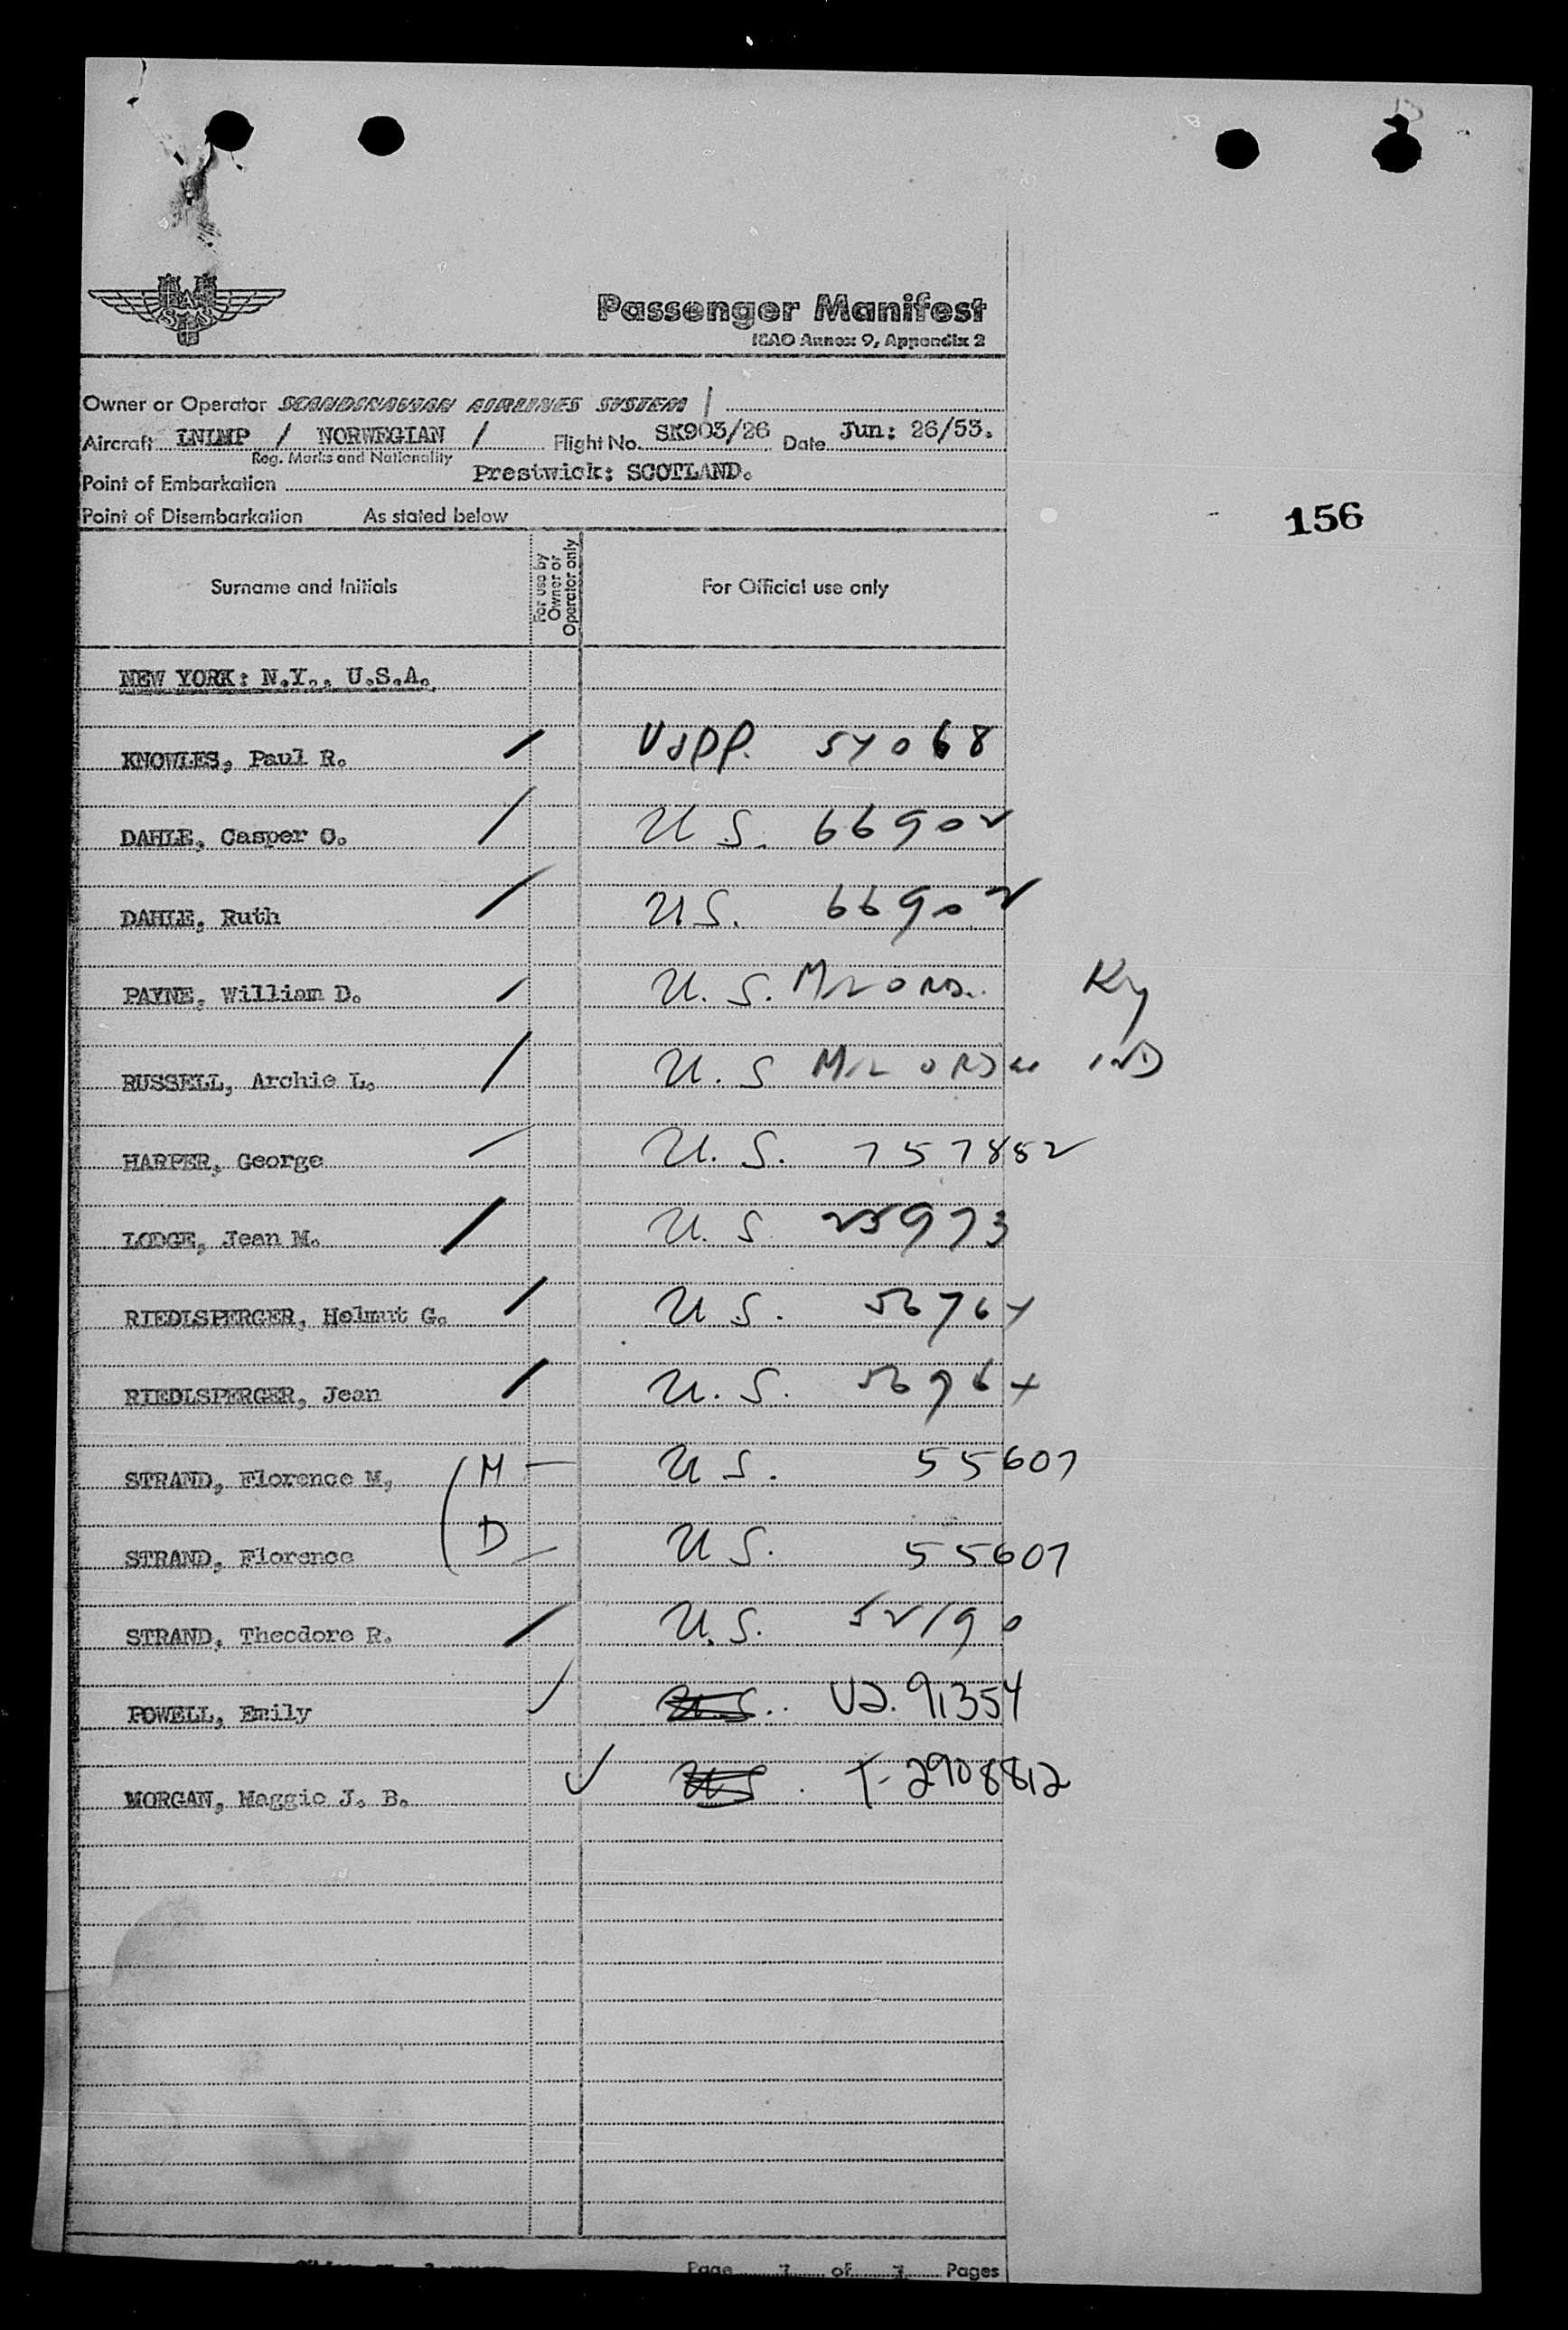 SAS
Passenger Manifest
ICAO Annex 9, Appendix 2
Owner or Operator SCANDINAVIAN AIRLINES SYSTEM /
Aircraft LNLMP / NORWEGIAN / Flight No. SK903/26 Date Jun: 26/53.
Reg. Marks and Nationality
Point of Embarkation Prestwick: SCOTLAND.
Point of Disembarkation As stated below
156
Surname and Initials For use by Owner or Operator only For Official use only
NEW YORK: N.Y., U.S.A.
KNOWLES, Paul R. / USPP. 54068
DAHLE, Casper O. / U.S. 66902
DAHLE, Ruth / U.S. 66902
PAYNE, William D. / U.S. MIL ORD. Ky
RUSSELL, Archie L. / U.S MIL ORDER IND
HARPER, George / U.S. 757852
LODGE, Jean M. / U.S 25973
RIEDLSPERGER, Helmut G. / U.S. 56764
RIEDLSPERGER, Jean / U.S. 56964
STRAND, Florence M, (M — U.S. 55607
STRAND, Florence (D — U.S. 55607
STRAND, Theodore R. / U.S. 52190
POWELL, Emily ✓ U.S. US. 91354
MORGAN, Maggie J. B. ✓ US. T-2908812
Page 7 of 7 Pages